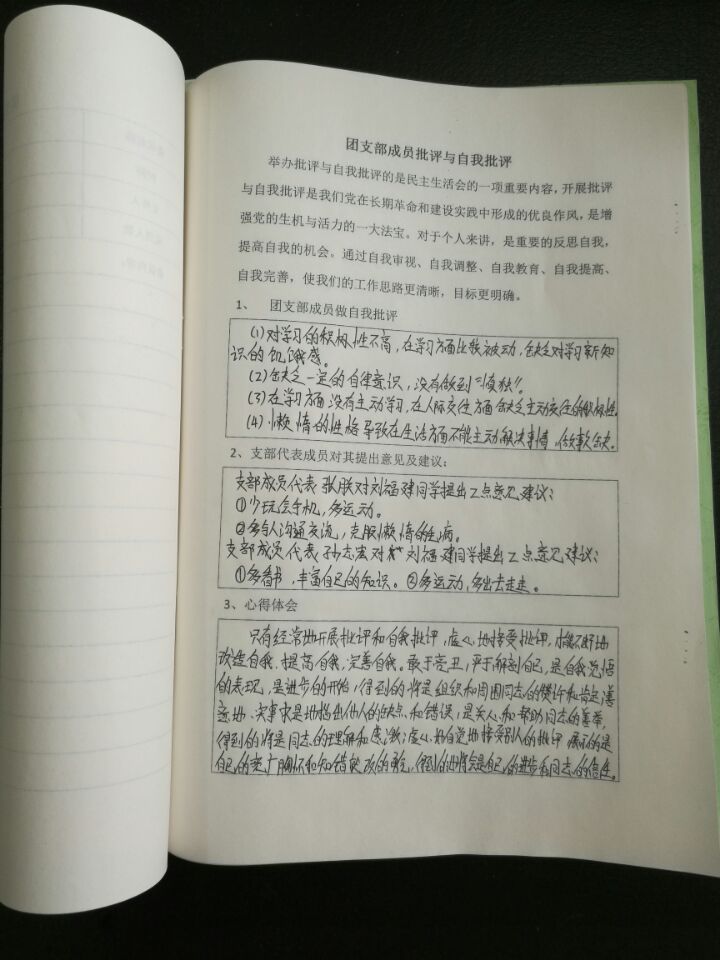 团支部成员批评与自我批评
举办批评与自我批评的是民主生活会的一项重要内容，开展批评
与自我批评是我们党在长期革命和建设实践中形成的优良作风，是增
强党的生机与活力的一大法宝。对于个人来讲，是重要的反思自我，
提高自我的机会。通过自我审视、自我调整、自我教育、自我提高、
自我完善，使我们的工作思路更清晰，目标更明确。
1、 团支部成员做自我批评
(1)对学习的积极性不高，在学习方面比较被动，缺乏对学习新知
识的饥饿感。
(2)缺乏一定的自律意识，没有做到"慎独"。
(3)在学习方面没有主动学习，在人际交往方面缺乏主动交往的积极性
(4)懒惰的性格导致在生活方面不能主动解决事情，做事
2、支部代表成员对其提出意见及建议：
支部成员代表张朕对刘福建同学提出2点意见建议：
①少玩会手机，多运动。
②多与人沟通交流，克服懒惰的毛病。
支部成员代表孙志宏对刘福建同学提出2点意见建议：
①多看书，丰富自己的知识。②多运动，多出去走走。
3、心得体会
只有经常地开展批评和自我批评，虚心地接受批评，才能不断地
改造自我、提高自我、完善自我。敢于亮丑，严于解剖自己，是自我觉悟
的表现，是进步的开始，得到的将是组织和周围同志的赞许和肯定；善
意地、实事求是地指出他人的缺点和错误，是关心和帮助同志的善举，
得到的将是同志的理解和感激；虚心、自觉地接受别人的批评，展示的是
自己的宽广胸怀和知错就改的勇气，得到的也将会是自己的进步和同志的信任。